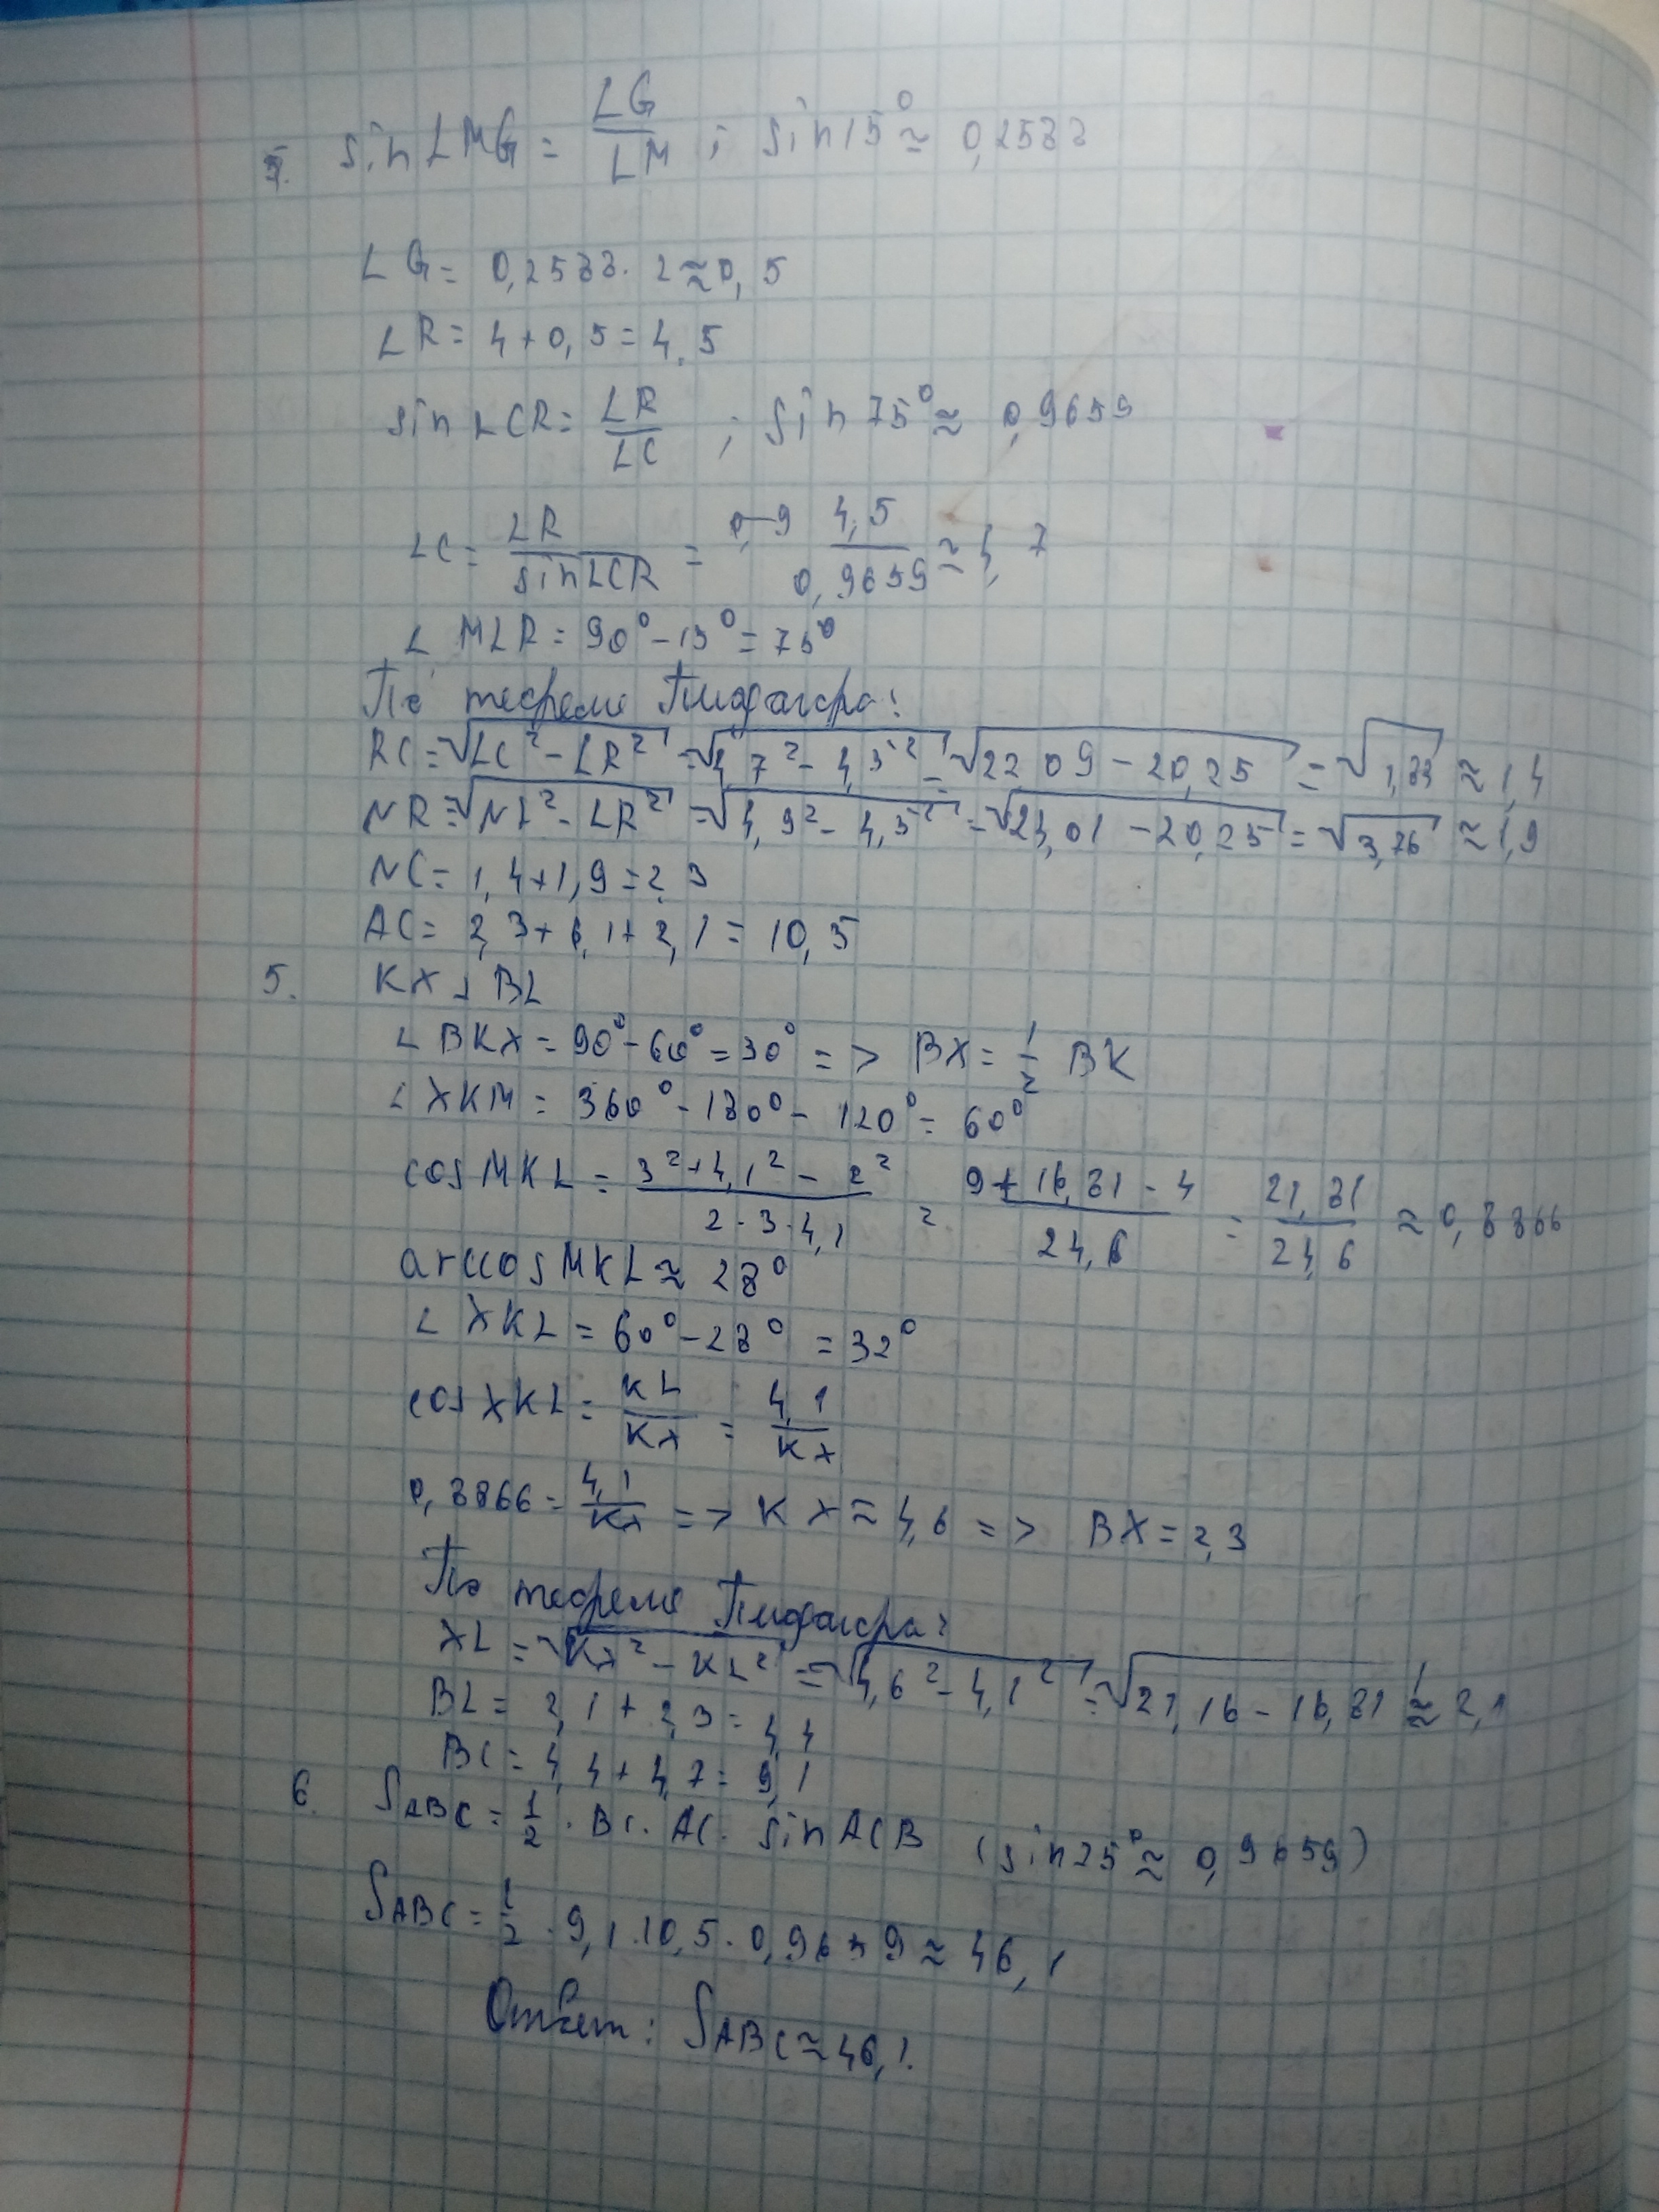 5. sin LMG = LG/LM ; sin 15° ≈ 0,2588
LG = 0,2588 · 2 ≈ 0,5
LR = 4 + 0,5 = 4,5
sin LCR = LR/LC ; sin 75° ≈ 0,9659
LC = LR/sin LCR = 4,5/0,9659 ≈ 4,7
∠ MLR = 90° - 15° = 75°
По теореме Пифагора:
RC = √(LC² - LR²) = √(4,7² - 4,5²) = √(22,09 - 20,25) = √1,88 ≈ 1,4
NR = √(NL² - LR²) = √(4,9² - 4,5²) = √(24,01 - 20,25) = √3,76 ≈ 1,9
NC = 1,4 + 1,9 = 2,3
AC = 2,3 + 6,1 + 2,1 = 10,5
5. KX ⊥ BL
∠ BKX = 90° - 60° = 30° => BX = 1/2 BK
∠ XKM = 360° - 180° - 120° = 60°
cos MKL = (3² + 4,1² - 2²)/(2 · 3 · 4,1) = (9 + 16,81 - 4)/24,6 = 21,81/24,6 ≈ 0,8866
arccos MKL ≈ 28°
∠ XKL = 60° - 28° = 32°
cos XKL = KL/KX = 4,1/KX
0,8866 = 4,1/KX => KX ≈ 4,6 => BX = 2,3
По теореме Пифагора:
XL = √(KX² - KL²) = √(4,6² - 4,1²) = √(21,16 - 16,81) ≈ 2,1
BL = 2,1 + 2,3 = 4,4
BC = 4,4 + 4,7 = 9,1
6. S ABC = 1/2 · BC · AC · sin ACB (sin 75° ≈ 0,9659)
S ABC = 1/2 · 9,1 · 10,5 · 0,9659 ≈ 46,1
Ответ: S ABC ≈ 46,1.